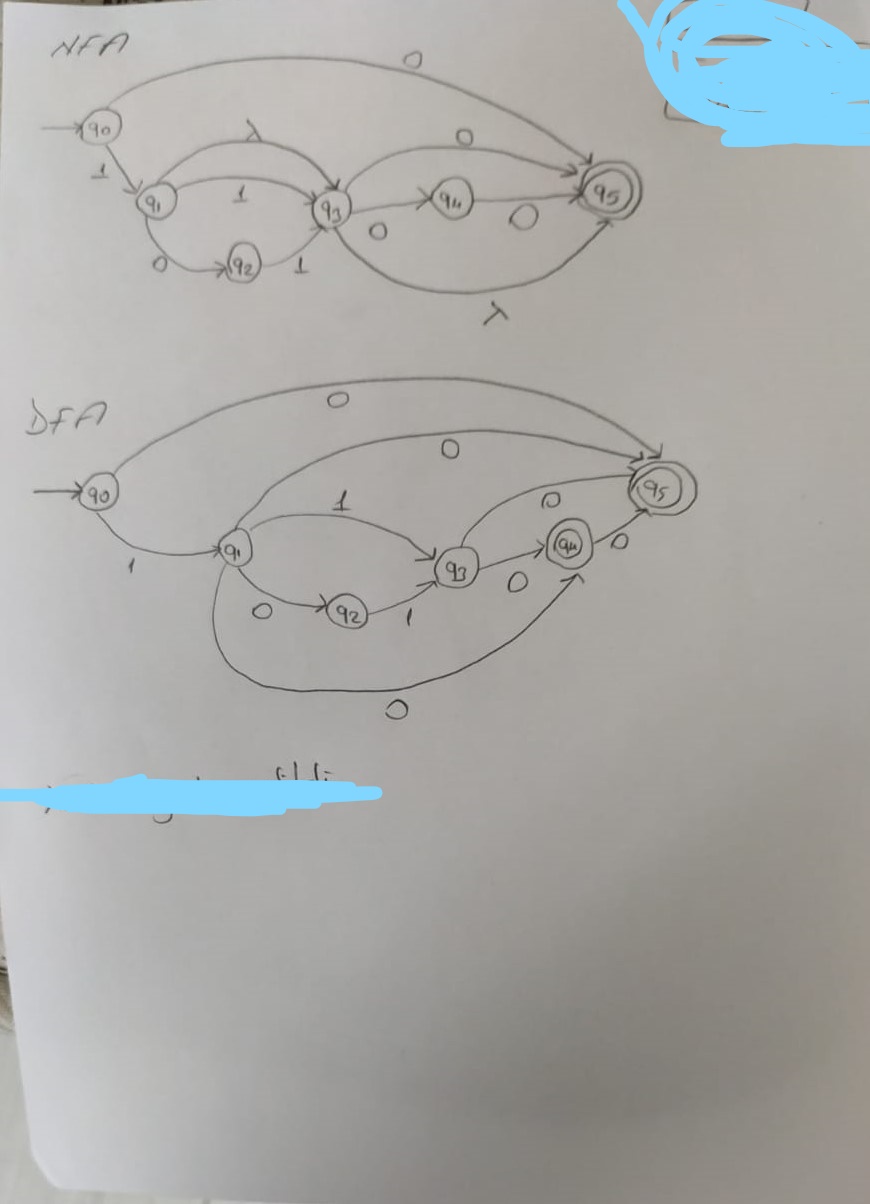 NFA
0
q0
1
λ
0
q1
1
q3
q4
q5
0
0
0
q2
1
λ
DFA
0
0
q0
1
0
q5
1
q1
q3
q4
0
0
0
q2
1
0